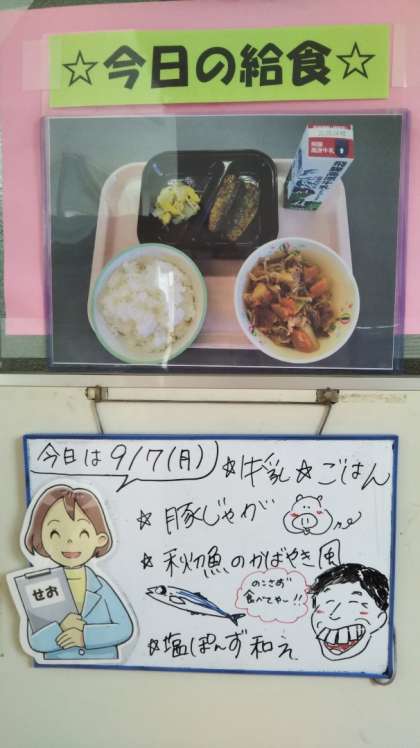 ☆今日の給食☆
飛騨
高原牛乳
今日は 9/7(月)
☆牛乳 ☆ごはん
☆豚じゃが
☆秋刀魚のかばやき風
のこさず
食べてやー!!
☆塩ぽんず和え
せお